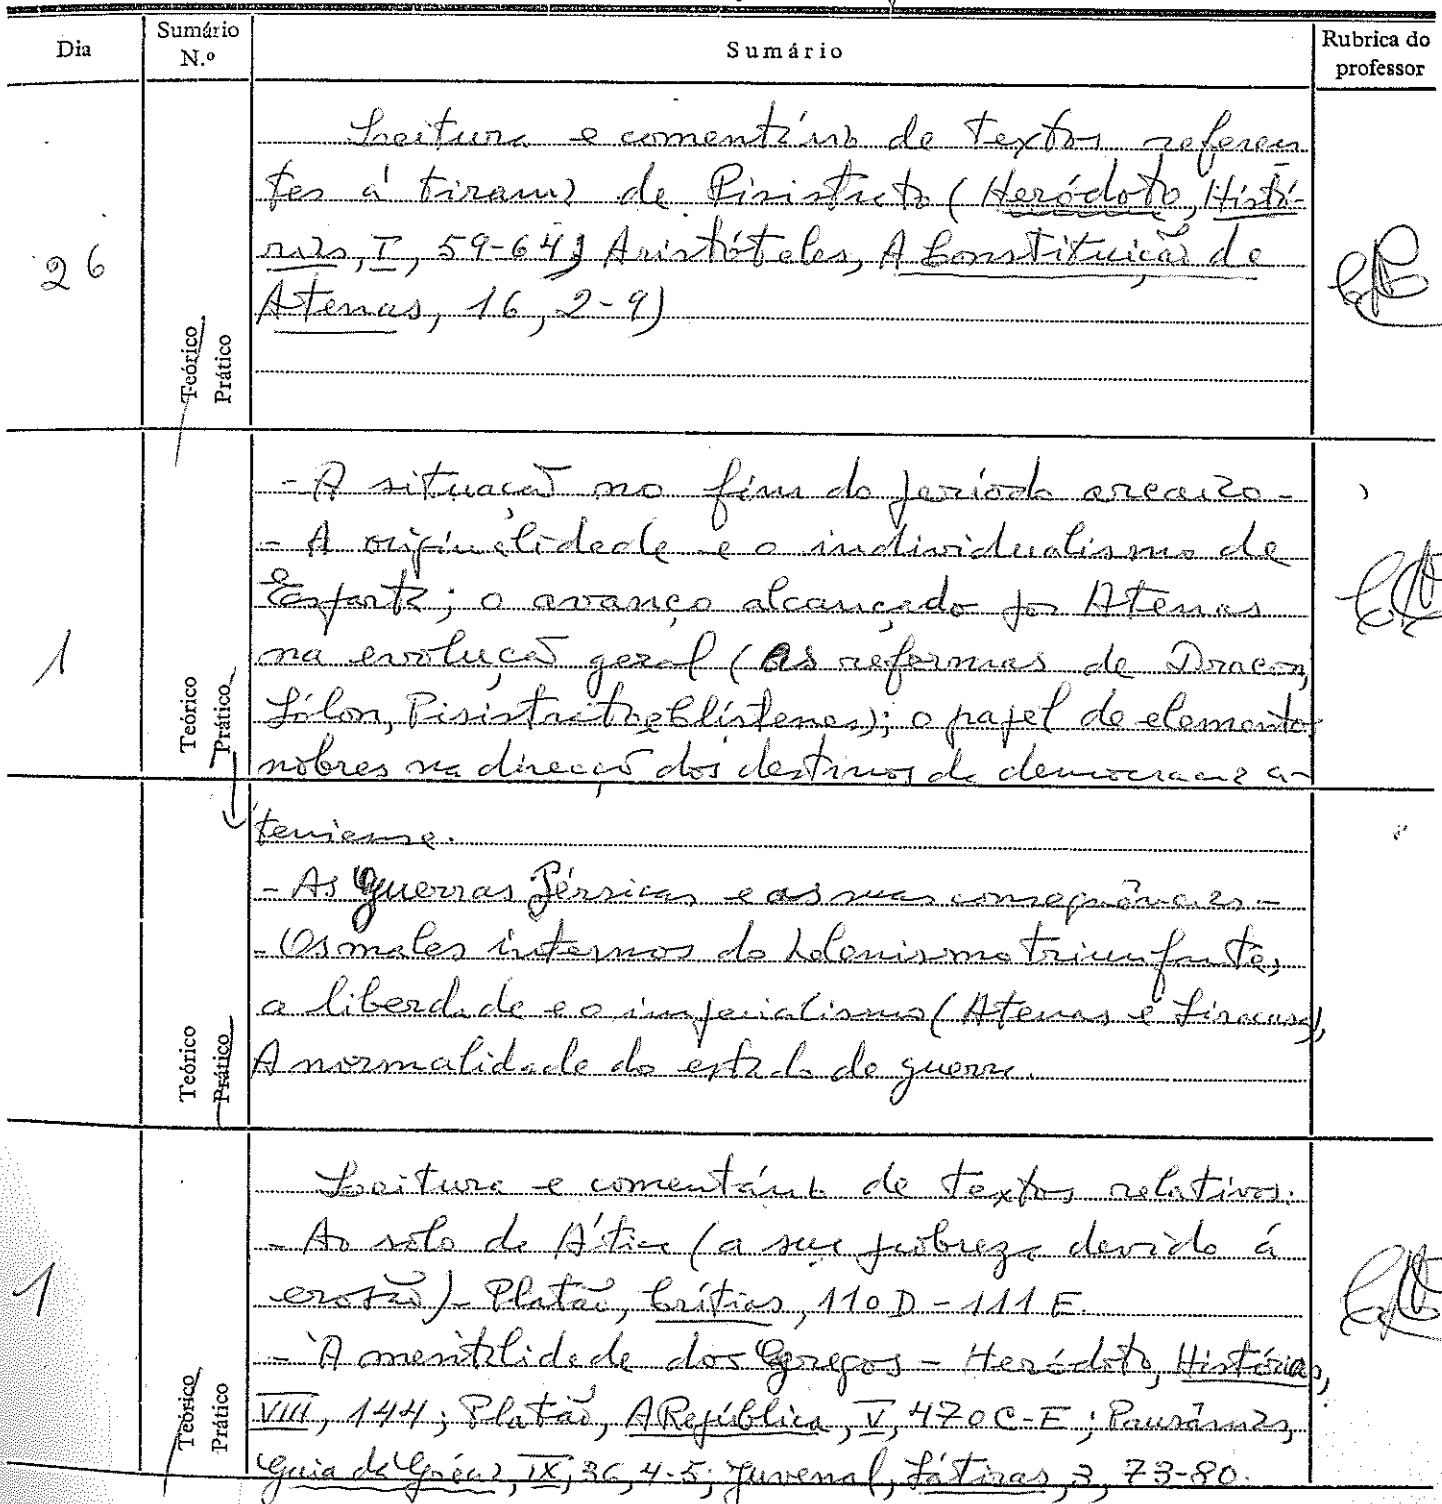 Dia
Sumário N.º
Sumário
Rubrica do professor
26
Teórico
Prático
Leitura e comentário de textos referen
tes à tirania de Pisístrato (Heródoto, Histó-
rias, I, 59-64; Aristóteles, A Constituição de
Atenas, 16, 2-9)
1
Teórico
Prático
- A situação no fim do período arcaico -
- A originalidade e o individualismo de
Esparta; o avanço alcançado por Atenas
na evolução geral (As reformas de Dracon,
Sólon, Pisístrato e Clístenes); o papel de elementos
nobres na direcção dos destinos da democracia a-
Teórico
Prático
teniense.
- As Guerras Pérsicas e as suas consequências -
- Os males internos do helenismo triunfante,
a liberdade e o imperialismo (Atenas e Siracusa),
A normalidade do estado de guerra.
1
Teórico
Prático
Leitura e comentário de textos relativos:
- Ao solo da Ática (a sua pobreza devido à
erosão) - Platão, Crítias, 110 D - 111 E.
- À mentalidade dos Gregos - Heródoto, Histórias,
VIII, 144; Platão, A República, V, 470 C-E; Pausânias,
Guia da Grécia, IX, 36, 4-5; Juvenal, Sátiras, 3, 73-80.